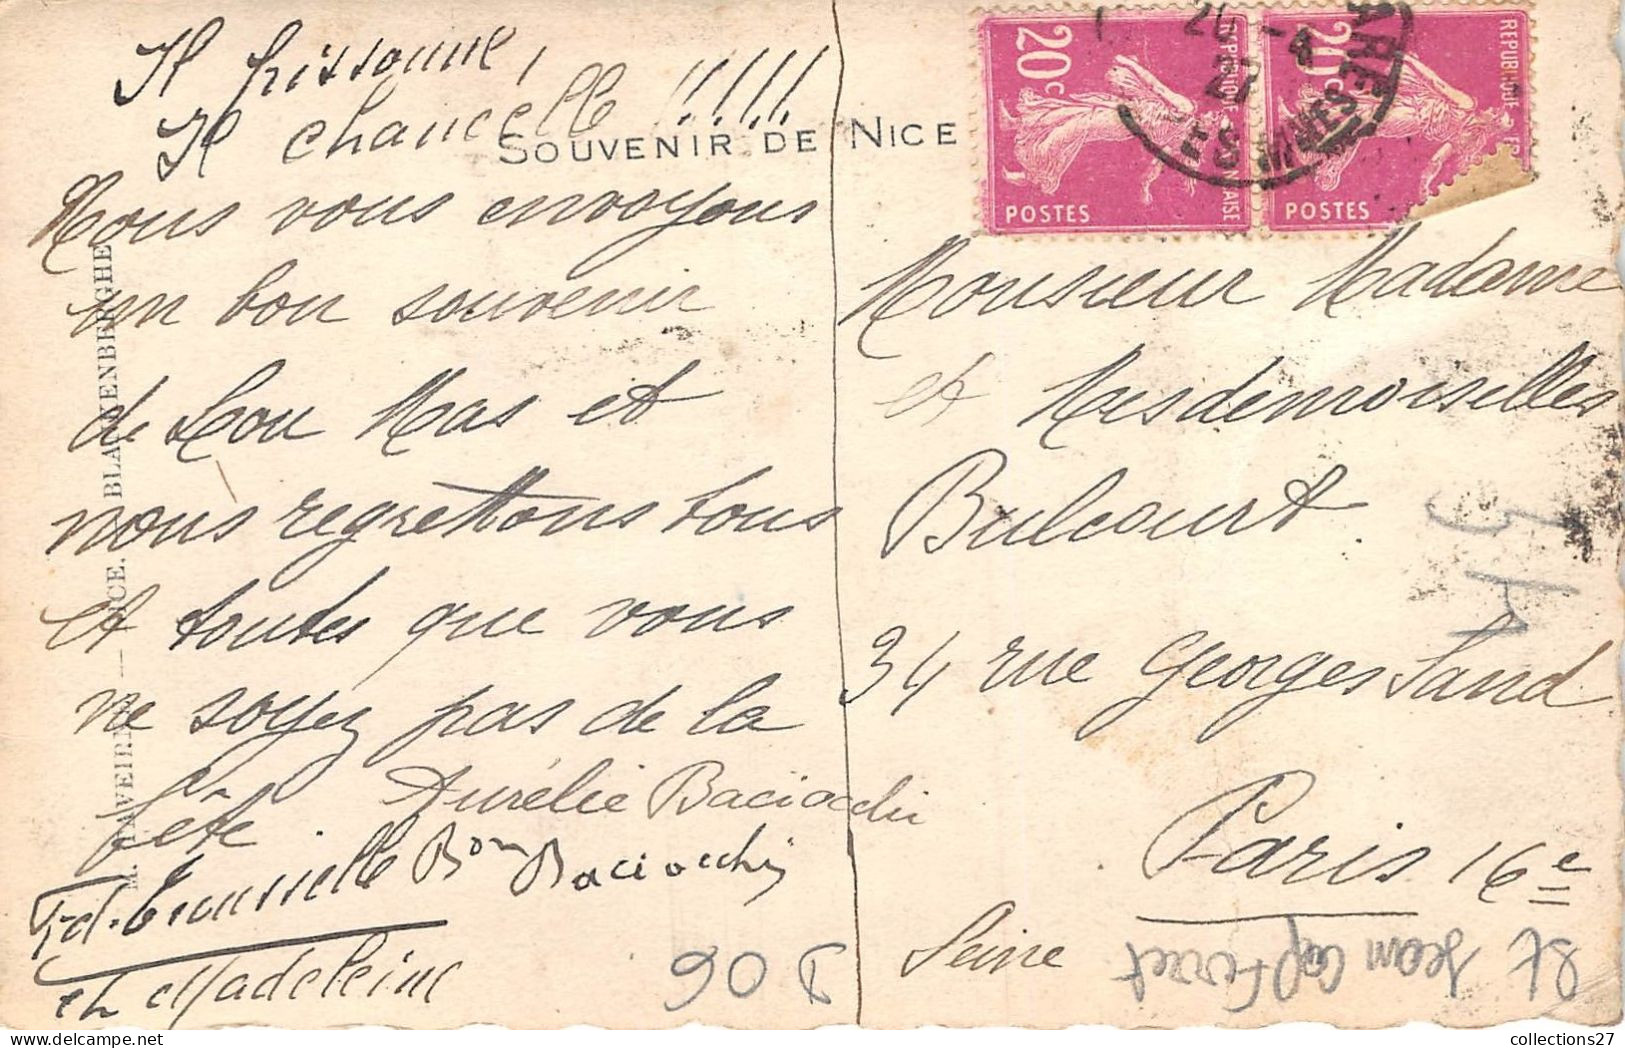 Il frissonne,
Il chancelle !!!!!
SOUVENIR DE NICE
Nous vous envoyons
un bon souvenir
de Lou Mas et
nous regrettons tous
et toutes que vous
ne soyez pas de la
fête
Aurélie Baciocchi
Bon Baciocchi
et Madeleine
M. TAVEIRNE — NICE. BLANKENBERGHE
20c
REPUBLIQUE FRANÇAISE
POSTES
20c
REPUBLIQUE
POSTES
Monsieur Madame
et Mesdemoiselles
Bulcourt
34 rue Georges Sand
Paris 16e
Seine
St Jean Cap Ferrat
06
collections27